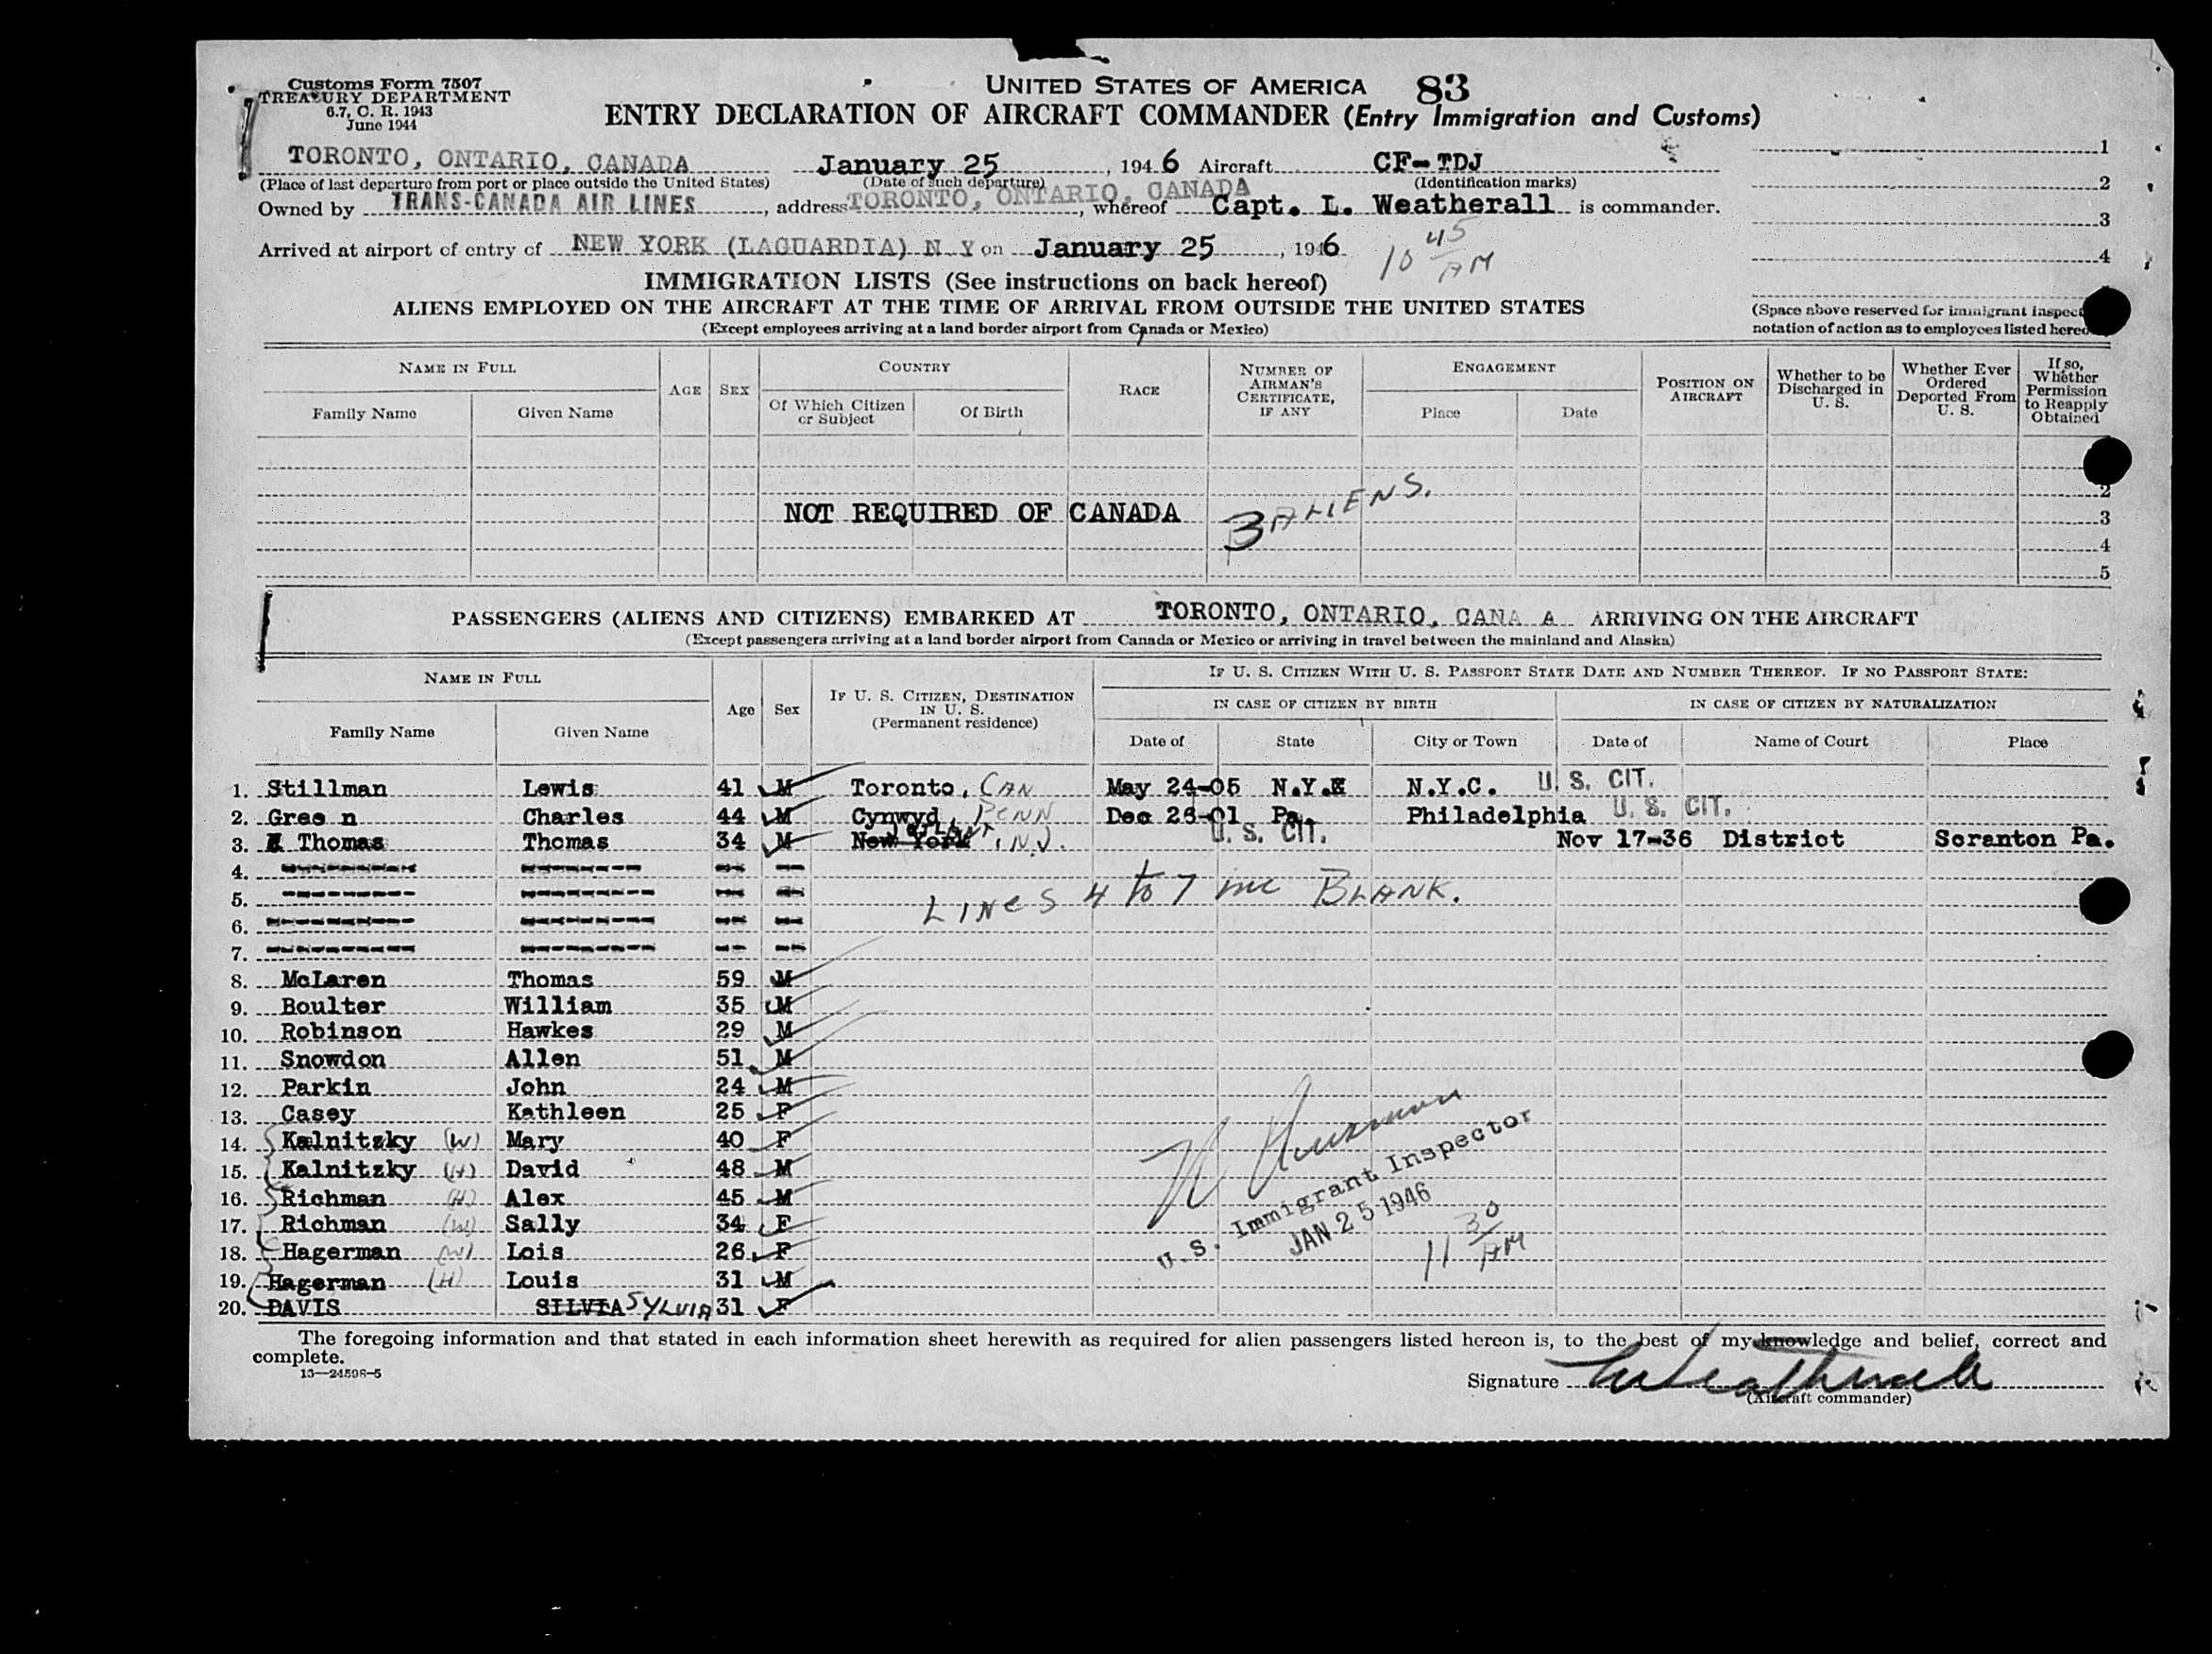 Customs Form 7507
TREASURY DEPARTMENT
6.7, C. R. 1943
June 1944
UNITED STATES OF AMERICA 83
ENTRY DECLARATION OF AIRCRAFT COMMANDER (Entry Immigration and Customs)
TORONTO, ONTARIO, CANADA January 25, 1946 Aircraft CF-TDJ
(Place of last departure from port or place outside the United States) (Date of such departure) (Identification marks)
Owned by TRANS-CANADA AIR LINES, address TORONTO, ONTARIO, CANADA, whereof Capt. L. Weatherall is commander.
Arrived at airport of entry of NEW YORK (LAGUARDIA) N.Y on January 25, 1946 10 45 AM
1
2
3
4
IMMIGRATION LISTS (See instructions on back hereof)
ALIENS EMPLOYED ON THE AIRCRAFT AT THE TIME OF ARRIVAL FROM OUTSIDE THE UNITED STATES
(Except employees arriving at a land border airport from Canada or Mexico)
(Space above reserved for immigrant inspect
notation of action as to employees listed hereo
NAME IN FULL AGE SEX COUNTRY RACE NUMBER OF AIRMAN'S CERTIFICATE, IF ANY ENGAGEMENT POSITION ON AIRCRAFT Whether to be Discharged in U. S. Whether Ever Ordered Deported From U. S. If so, Whether Permission to Reapply Obtained
Family Name Given Name Of Which Citizen or Subject Of Birth Place Date
2
NOT REQUIRED OF CANADA 3 ALIENS. 3
4
5
PASSENGERS (ALIENS AND CITIZENS) EMBARKED AT TORONTO, ONTARIO, CANA A ARRIVING ON THE AIRCRAFT
(Except passengers arriving at a land border airport from Canada or Mexico or arriving in travel between the mainland and Alaska)
NAME IN FULL Age Sex IF U. S. CITIZEN, DESTINATION IN U. S. (Permanent residence) IF U. S. CITIZEN WITH U. S. PASSPORT STATE DATE AND NUMBER THEREOF. IF NO PASSPORT STATE:
IN CASE OF CITIZEN BY BIRTH IN CASE OF CITIZEN BY NATURALIZATION
Family Name Given Name Date of State City or Town Date of Name of Court Place
1. Stillman Lewis 41 M Toronto, CAN May 24-05 N.Y. N.Y.C. U.S. CIT.
2. Gree n Charles 44 M Cynwyd, PENN Dec 26-01 Pa. Philadelphia U.S. CIT.
3. Thomas Thomas 34 M New York N.J. U.S. CIT. Nov 17-36 District Scranton Pa.
4.
5. LINES 4 to 7 inc BLANK.
6.
7.
8. McLaren Thomas 59 M
9. Boulter William 35 M
10. Robinson Hawkes 29 M
11. Snowdon Allen 51 M
12. Parkin John 24 M
13. Casey Kathleen 25 F
14. Kalnitzky (W) Mary 40 F
15. Kalnitzky (H) David 48 M
16. Richman (H) Alex 45 M
17. Richman (W) Sally 34 F
18. Hagerman (W) Lois 26 F
19. Hagerman (H) Louis 31 M
20. DAVIS SILVIA SYLVIA 31 F
U. S. Immigrant Inspector
JAN 25 1946
11 30 AM
The foregoing information and that stated in each information sheet herewith as required for alien passengers listed hereon is, to the best of my knowledge and belief, correct and
complete.
13—24598-5
Signature Weatherall
(Aircraft commander)